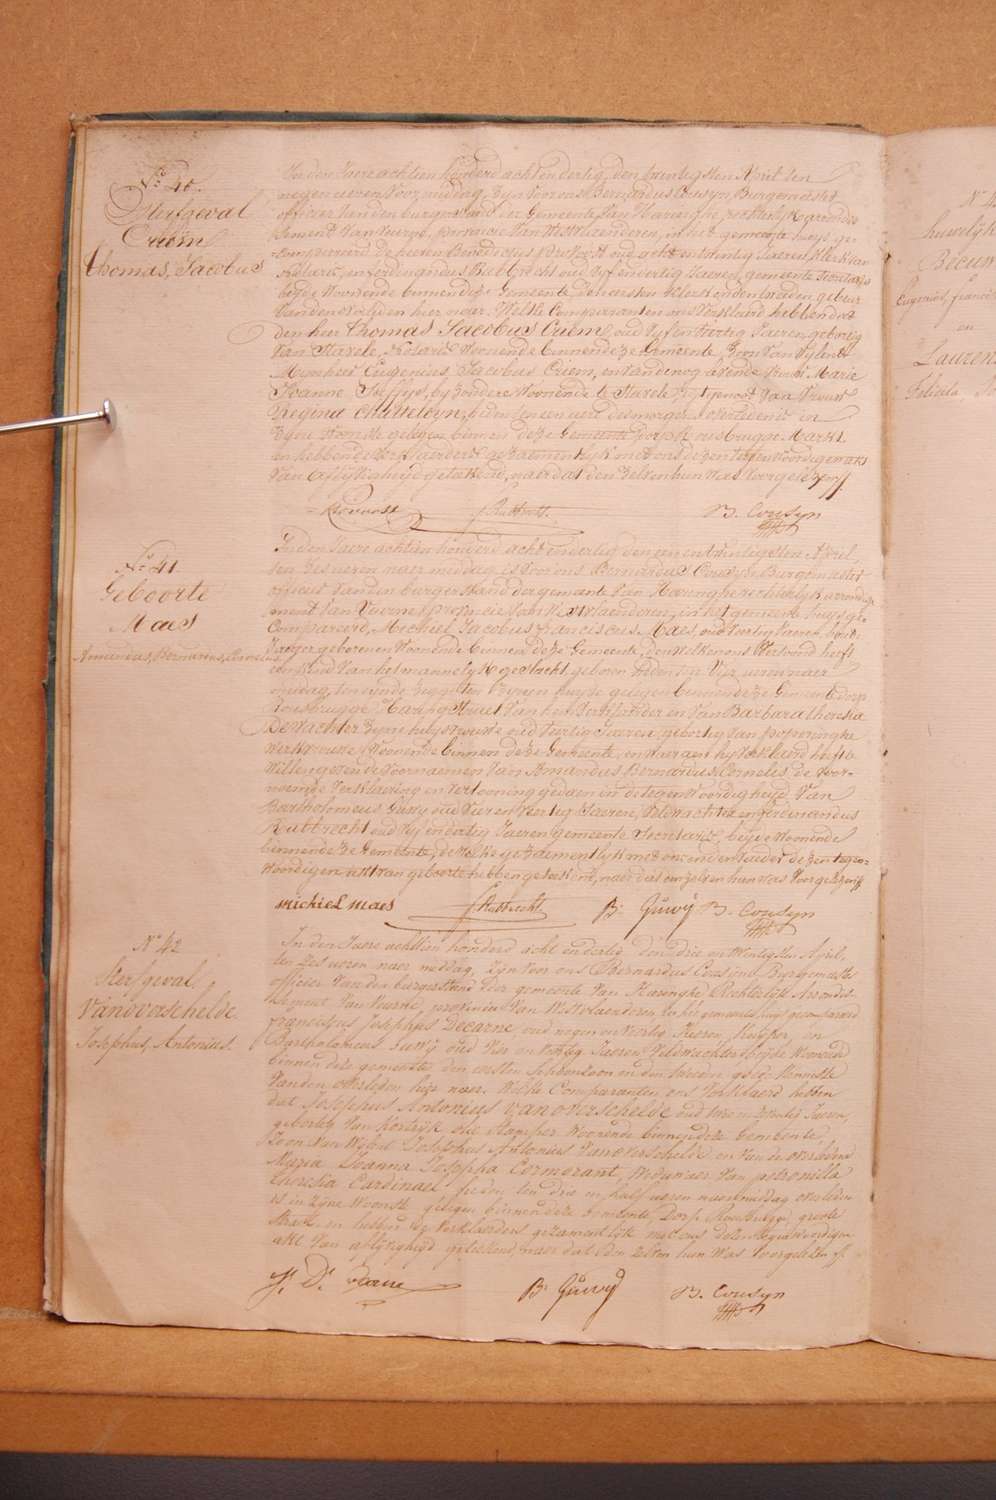 N.º 40.
Sterfgeval
Criem
thomas, Jacobus
In den Jaere achtien honderd acht en dertig, den twintigsten April ten
negen ueren voor middag, Zyn voor ons Bernardus Cousyn Burgemeester
officier van den burgerstand der Gemeente van Haringhe rechterlyk arrondis-
sement van Veurne, provincie van Westvlaenderen, in het gemeente huys ge-
compareerd de heeren Benedictus oud acht en twintig Jaeren, Klerk van
Notaris, en ferdinandus Rubbrecht oud vyf en dertig Jaeren, gemeente Secretaris
beyde Woonende binnen deze Gemeente, den eersten en den tweeden gebuer
van den overleden hier naer. Welke Comparanten ons Verklaerd hebben dat
den heer thomas Jacobus Criem, oud vyf en veertig Jaeren, geboortig
van Stavele, Notaris Woonende binnen deze Gemeente, Zoon van wylent
Mynheer Eugenius Jacobus Criem, en van de nog levende vrouw Marie
Joanne byzondere Woonende te Stavele, Echtgenoot van vrouw
Regina overleden is in
Zyne Wooniste gelegen binnen deze Gemeente dorp Rousbrugge Markt
en hebben de Verklaerders gezaementlyk met ons dezen tegenwoordigen akt
van aflyvigheyd geteekend, naer dat den zelven hun was voorgelezen
Provoost
f. Rubbrecht
B. Cousyn
N.º 41
Geboorte
Maes
Amandus, Bernardus, Cornelius
In den Jaere achtien honderd acht en dertig den een en twintigsten April,
ten zes ueren naer middag, is voor ons Bernardus Cousyn Burgemeester
officier van den burgerstand der gemeente van Haringhe rechterlyk arrondis-
sement van Veurne, provincie van Westvlaenderen, in het gemeente huys ge-
compareerd, Michiel Jacobus franciscus Maes, oud veertig Jaeren,
geboren en Woonende binnen deze Gemeente, den welken ons Vertoond heeft
een kind van het mannelyk geslacht geboren heden ten vyf ueren naer
middag, ten eynde Zyn huyze gelegen binnen deze Gemeente dorp
Rousbrugge Haring Straet, van hem Verklaerder en van Barbara theresia
De Wachter Zyne huysvrouwe oud veertig Jaeren, geboortig van poperinghe
Werkvrouwe, Woonende binnen deze Gemeente, en waer aen hy Verklaerd heeft te
Willen geven de Voornaemen van Amandus Bernardus Cornelis, de Voor-
noemde Verklaering en Vertooning gedaen in de tegenwoordigheyd van
Bartholomeus Guwy oud Vier en veertig Jaeren, Veldwachter en ferdinandus
Rubbrecht oud vyf en dertig Jaeren gemeente Secretaris, beyde Woonende
binnen deze Gemeente, de welke gezaementlyk met ons en den Vader dezen tegen-
woordigen akt van geboorte hebben geteekend, naer dat om zelven hun was voorgelezen
michiel maes
f. Rubbrecht
B: Guwÿ
B. Cousyn
N.º 42
Sterfgeval
Vanoverschelde
Josephus, Antonius.
In den Jaere achtien honderd acht en dertig, den drie en twintigsten April,
ten zes ueren naer middag, Zyn voor ons Bernardus Cousyn Burgemeester
officier van den burgerstand der gemeente van Haringhe Rechterlyk Arrondis-
sement van Veurne, provincie van Westvlaenderen, in het gemeente huys gecompareerd
franciscus Josephus Decarne oud negen en veertig Jaeren, Kuyper, en
Bartholomeus Guwÿ oud Vier en veertig Jaeren Veldwachter, beyde Woonende
binnen deze gemeente den eersten Schoonzoon en den tweeden goede Kenniste
van den overleden hier naer. Welke Comparanten ons Verklaerd hebben
dat Josephus Antonius Vanoverschelde oud Jaeren,
geboortig van Kortryk Woonende binnen deze Gemeente,
Zoon van wylent Josephus Antonius Vanoverschelde en van de overledene
Maria Joanna Josepha Cormorant, Weduwaer van petronilla
theresia Cardinael, heden ten drie en half ueren naer middag overleden
is in Zyne Wooniste gelegen binnen deze Gemeente, Dorp Rousbrugge, groote
Straete en hebben de Verklaerders gezamentlyk met ons deze tegenwoordigen
akt van aflyvigheyd geteekend, naer dat den zelven hun was voorgelezen
B: Guwÿ
B. Cousyn
N.º
huwelijk
Eugenius, franciscus
en
Laurens
Felicita,